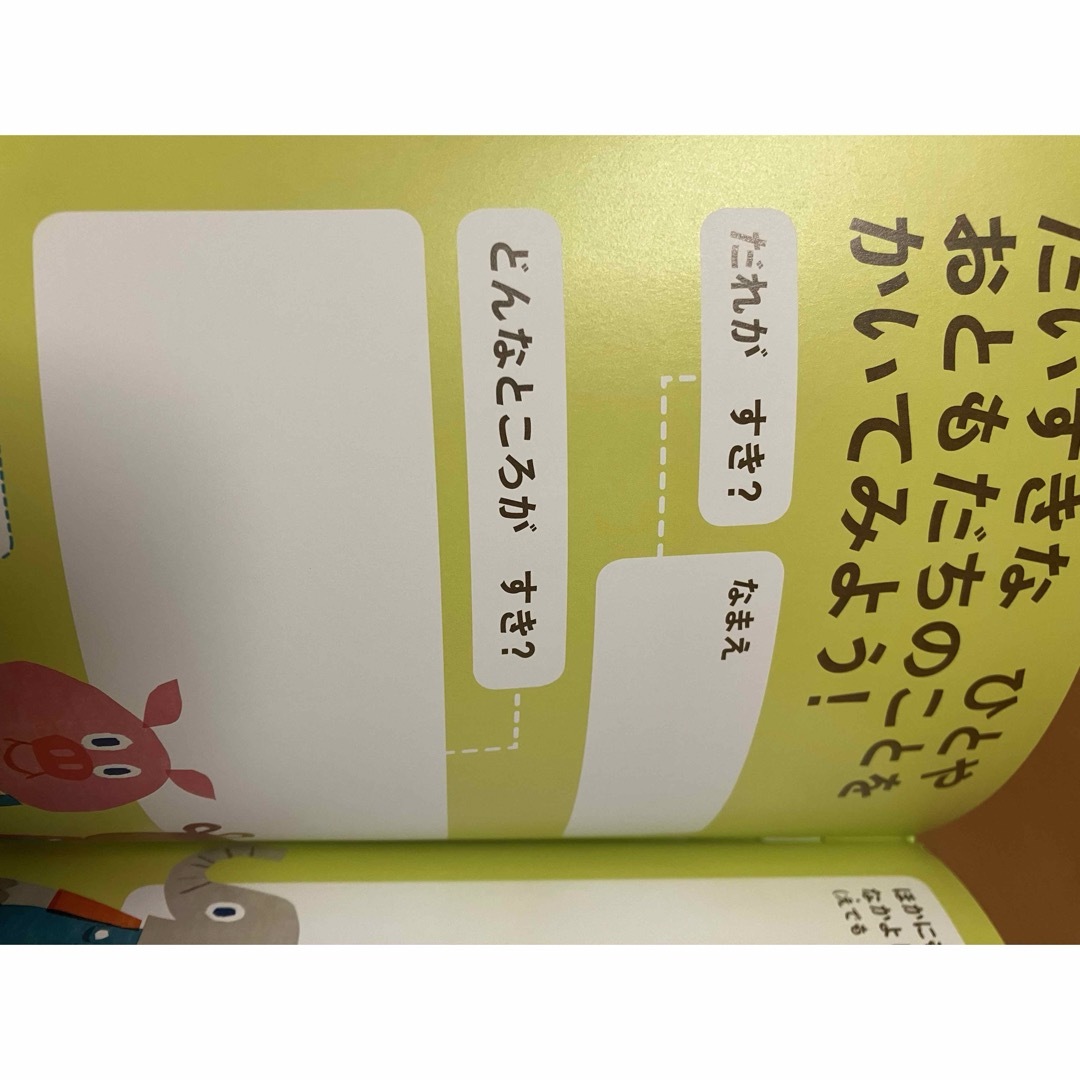 だいすきな ひとや
おともだちのことを
かいてみよう!
だれが すき?
なまえ
どんなところが すき?
ほかに
なかよ